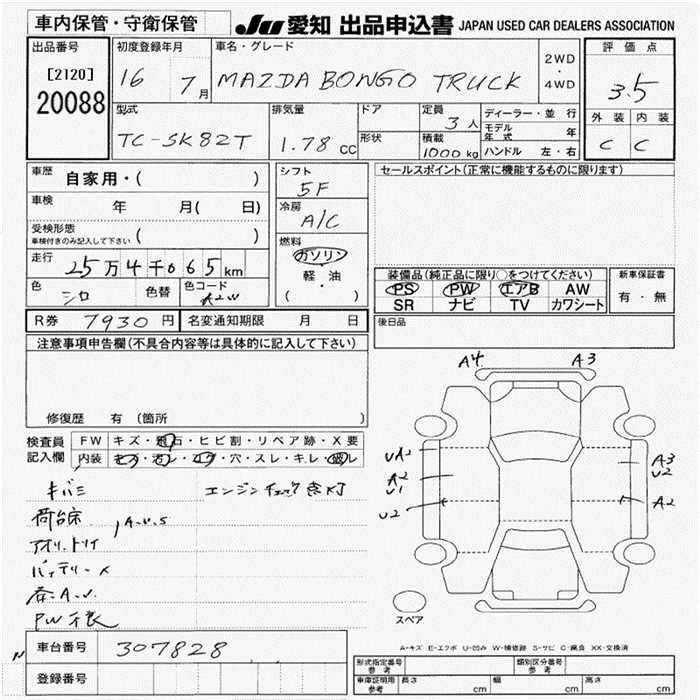 車内保管・守衛保管 JU 愛知 出品申込書 JAPAN USED CAR DEALERS ASSOCIATION
出品番号 初度登録年月 車名・グレード 2WD ・ 4WD 評価点
[2120]
20088 16 7月 MAZDA BONGO TRUCK 3.5
型式 排気量 ドア 定員 3人 ディーラー・並行 外装 内装
モデル年式 年
TC-SK82T 1.78 cc 形状 積載 1000kg ハンドル 左・右 C C
車歴 自家用・( ) シフト セールスポイント(正常に機能するものに限ります)
5F
車検 年 月( 日) 冷房
A/C
受検形態
車検付きのみ記入して下さい ( )
燃料
走行 25万4千065km ガソリン
装備品(純正品に限り○をつけてください) 新車保証書
色 シロ 色替 色コード A2W 軽・油
( )
PS PW エアB AW 有・無
SR ナビ TV カワシート
R券 7930円 名変通知期限 月 日 後日品
注意事項申告欄(不具合内容等は具体的に記入して下さい)
A4 A3
修復歴 有 (箇所 )
検査員 FW キズ・飛石・ヒビ割・リペア跡・X要
記入欄 内装 キズ・汚レ・コゲ・穴・スレ・キレ・破レ
UA2 A3
U2
A2
U1
U2 A2
キバミ エンジンチェック点灯
荷台床
アオリ、トリイ A.U.S
バッテリーメ
PW不良
スペア
車台番号 307828
登録番号
A-キズ E-エクボ U-凹み W-補修跡 S-サビ C-腐食 XX-交換済
形式指定番号 参考 類別区分番号 参考
車庫証明用 参考 長さ cm 幅 cm 高さ cm